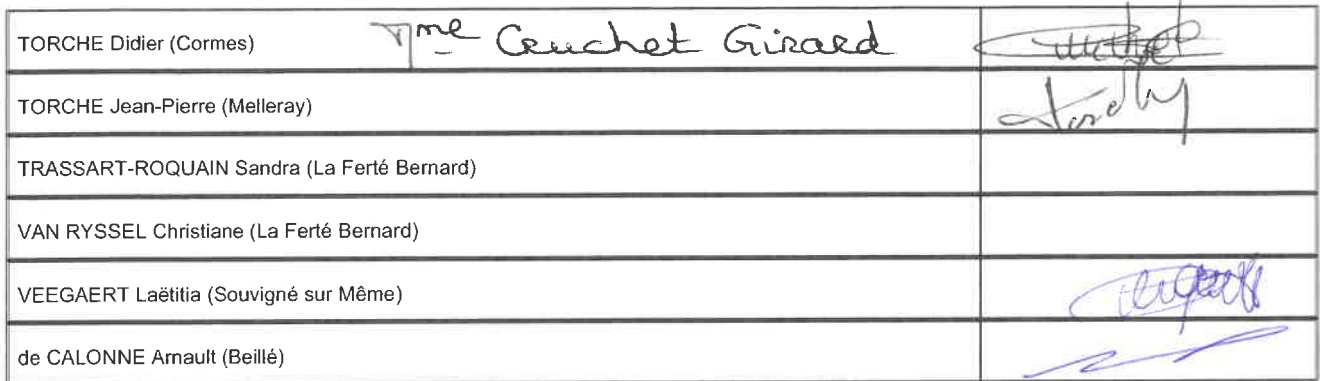 TORCHE Didier (Cormes) Mme Cruchet Girard
TORCHE Jean-Pierre (Melleray)
TRASSART-ROQUAIN Sandra (La Ferté Bernard)
VAN RYSSEL Christiane (La Ferté Bernard)
VEEGAERT Laëtitia (Souvigné sur Même)
de CALONNE Arnault (Beillé)